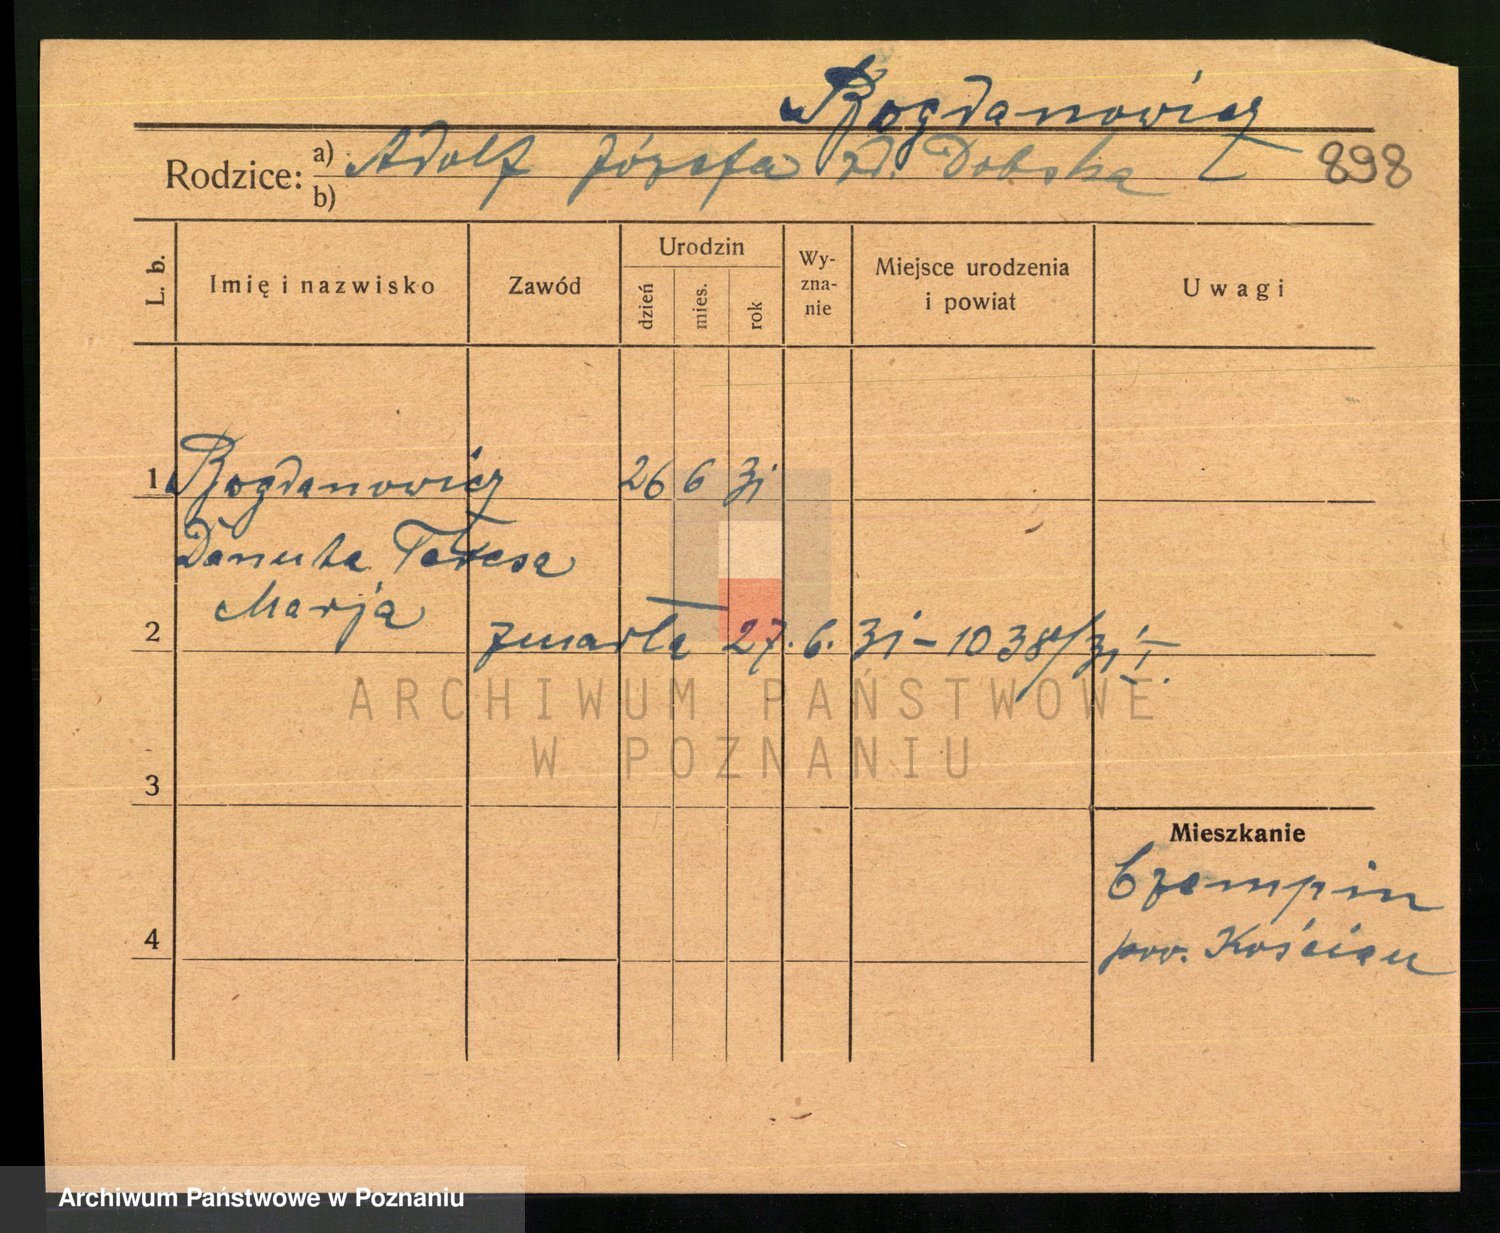 Bogdanowicz
Rodzice: a) Adolf Józefa zd. Dobska 898
b)
L. b. Imię i nazwisko Zawód Urodzin dzień mies. rok Wy-zna-nie Miejsce urodzenia i powiat Uwagi
1 Bogdanowicz 26 6 31
Danuta Teresa
Marja
2 zmarła 27. 6. 31 – 1038/31 I.
ARCHIWUM PAŃSTWOWE
W POZNANIU
3
Mieszkanie
Czempin
pow. Kościan
4
Archiwum Państwowe w Poznaniu